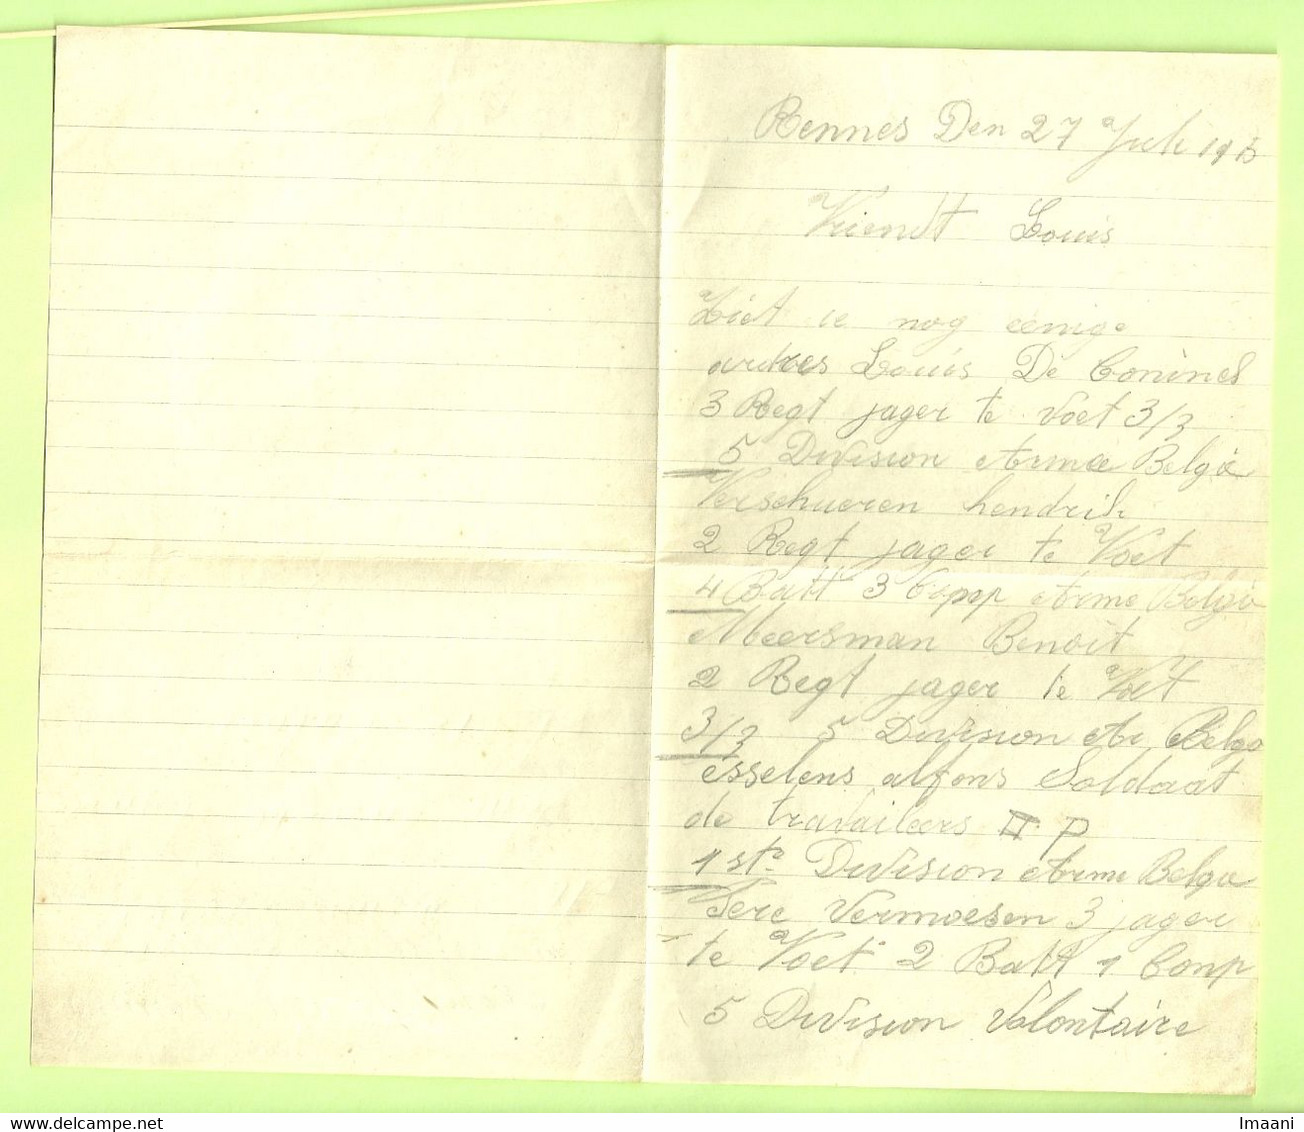 Rennes Den 27 Juli 1915
Vriendt Louis
Ziet ie nog eenige
adres Louis De Coninck
3 Regt jager te voet 3/3
5 Division Armee Belge
Verschueren hendrik
2 Regt jager te Voet
4 Batt 3 Comp Arme Belge
Meersman Benoit
2 Regt jager te Voet
3/3 5 Division Ar Belge
esselens alfons Soldaat
de travaileers II P
1ste Division Arme Belge
Vermoesen 3 jager
te Voet 2 Batt 1 Comp
5 Division Volontaire
Imaani